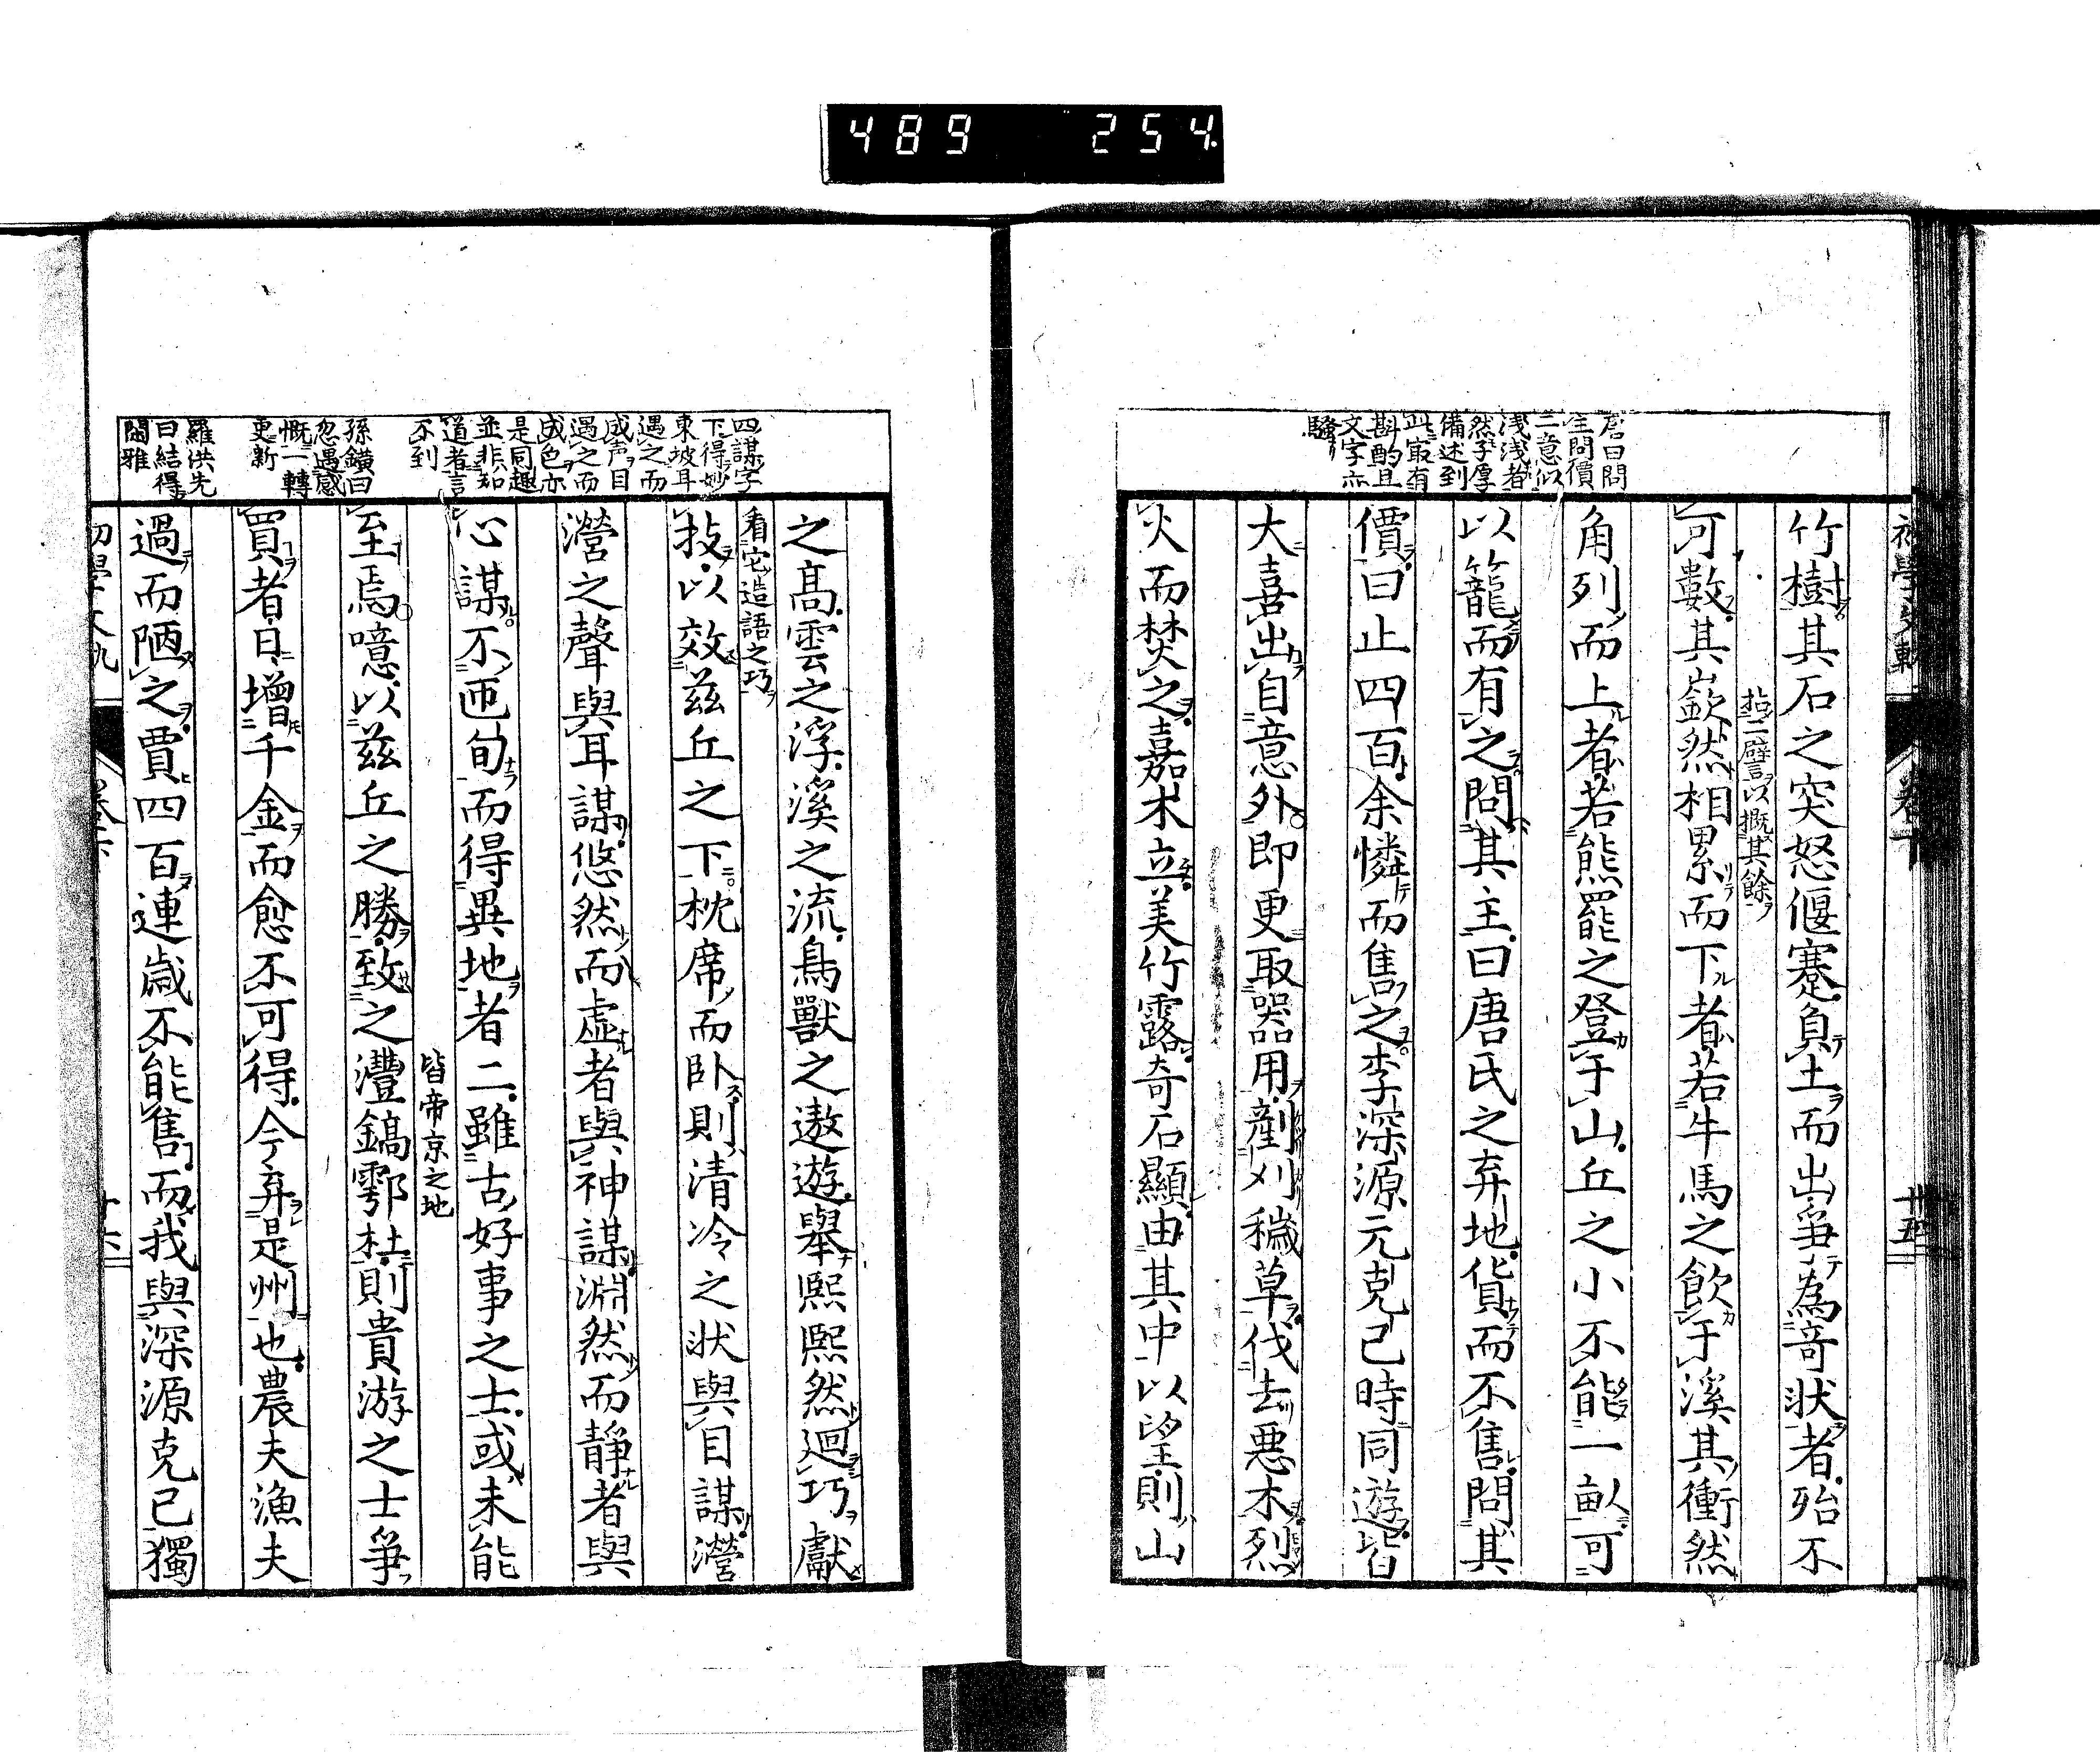 489 254
唐曰問
主問價
二意似
淺淺者
然子厚
備述到
此最有
斟酌且
文字亦
騷
竹樹其石之突怒偃蹇負土而出爭為奇狀者殆不
拈二譬以概其餘
可數其嶔然相累而下者若牛馬之飲于溪其衝然
角列而上者若熊羆之登于山丘之小不能一畝可
以籠而有之問其主曰唐氏之弃地貨而不售問其
價曰止四百余憐而售之李深源元克己時同遊皆
大喜出自意外即更取器用剷刈穢草伐去悪木烈
火而焚之嘉木立美竹露奇石顯由其中以望則山
四謀字
下得妙
東坡耳
遇之而
成声目
遇之而
成色亦
是同趣
並非知
道者言
不到
孫鑛曰
忽遇感
慨一轉
更新
羅洪先
曰結得
閒雅
之高雲之浮溪之流鳥獸之遨遊舉熙熙然迴巧獻
看它造語之巧
技以效茲丘之下枕席而卧則清冷之状與目謀瀯
瀯之聲與耳謀悠然而虚者與神謀淵然而靜者與
心謀不匝旬而得異地者二雖古好事之士或未能
皆帝京之地
至焉噫以茲丘之勝致之灃鎬鄠杜則貴游之士爭
買者日增千金而愈不可得今弃是州也農夫漁夫
過而陋之賈四百連歳不能售而我與深源克己獨